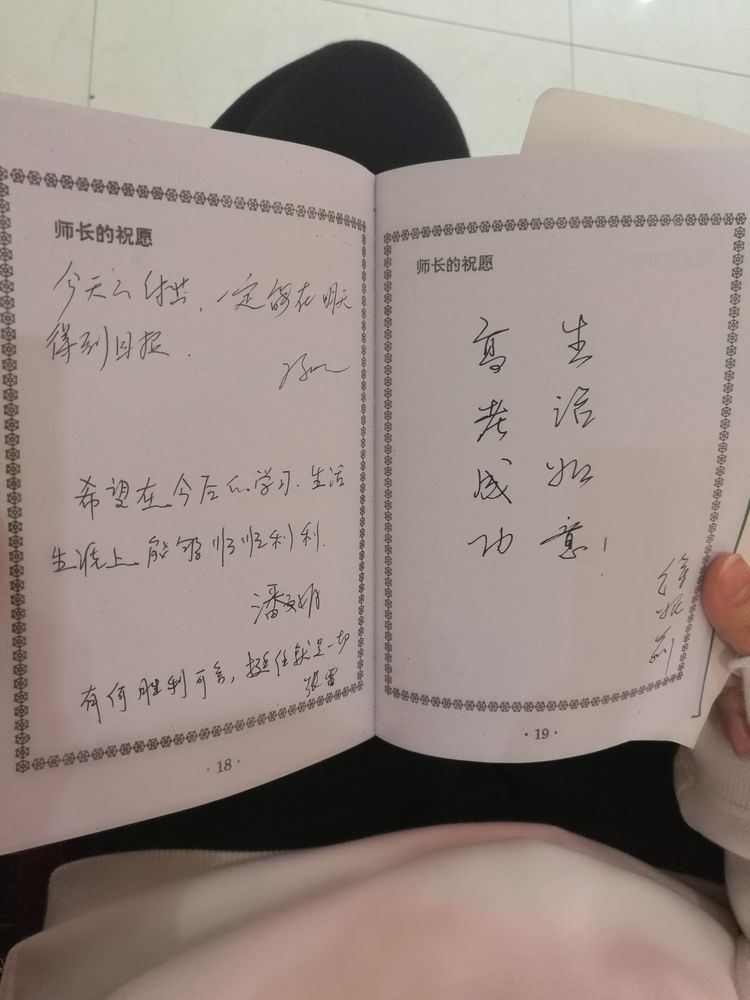 师长的祝愿
今天的付出、一定能在明天
得到回报.
希望在今后的学习.生活
生活上能够顺顺利利.
潘文娟
有何胜利可言,挺住就是一切
张雷
·18·
师长的祝愿
高考成功
生活如意!
·19·